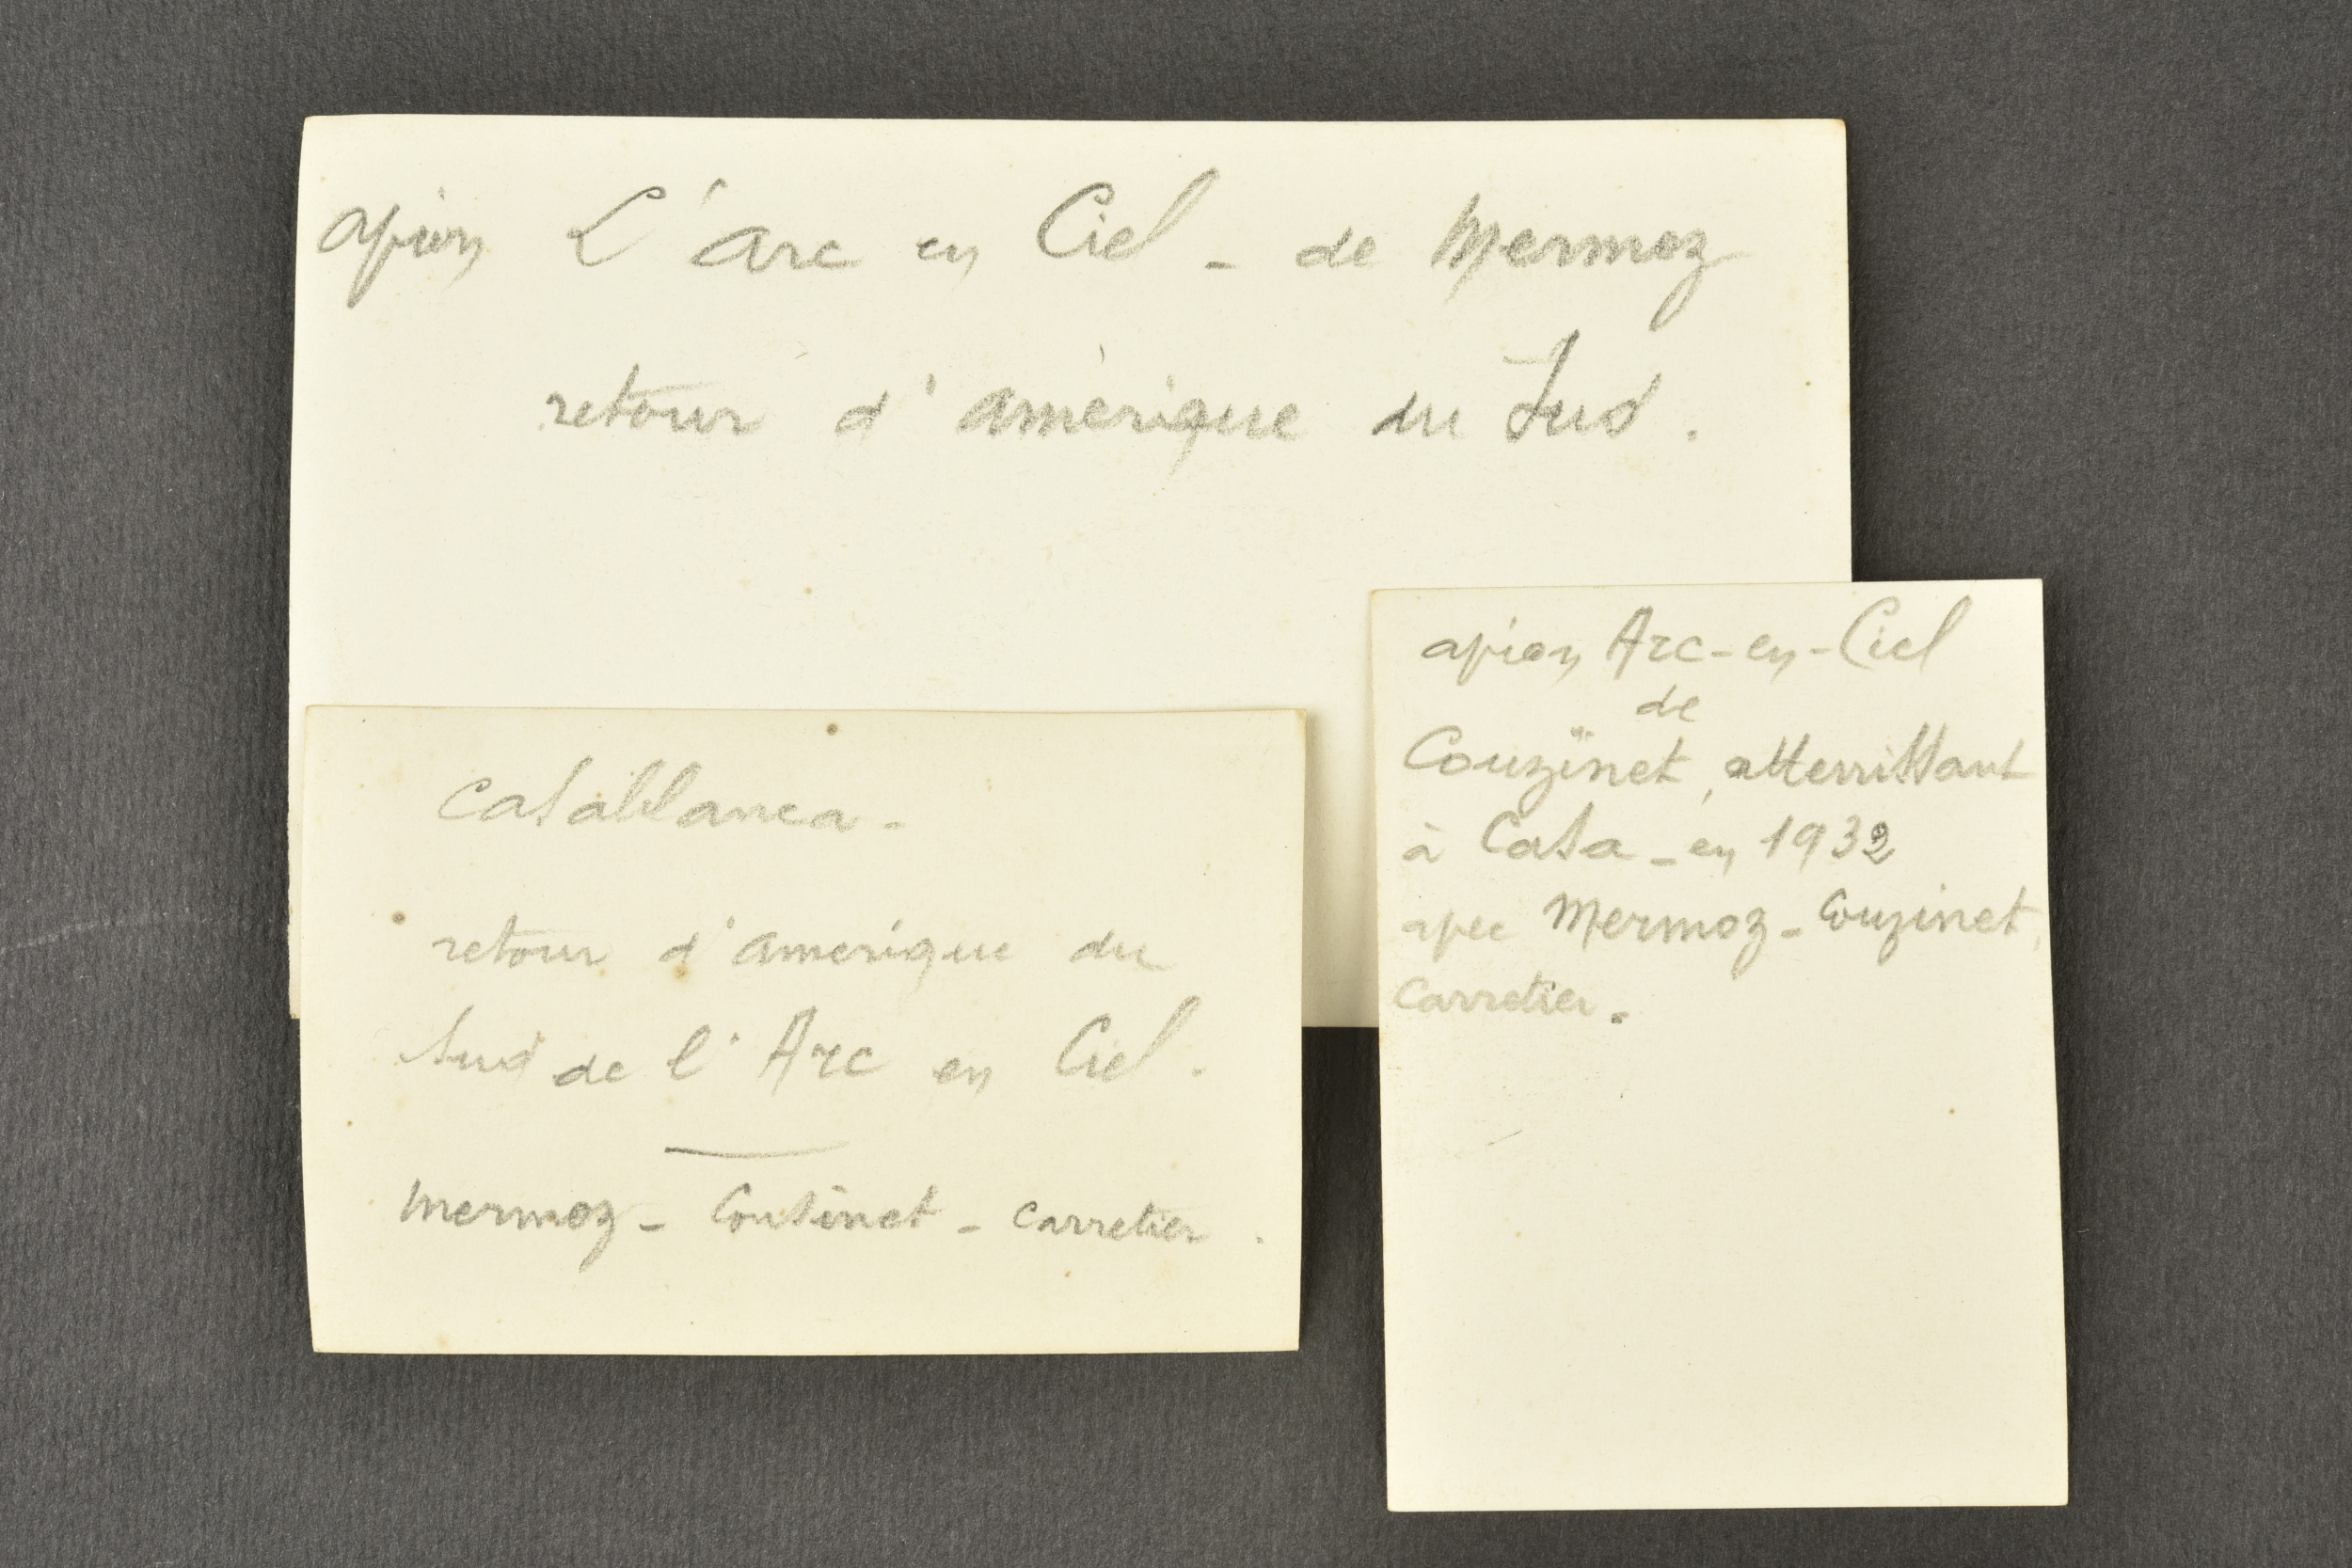 avion L'Arc en Ciel - de Mermoz
retour d'Amérique du Sud.
Casablanca -
retour d'Amerique du
Sud de l'Arc en Ciel.
Mermoz - Cousinet - Carretier.
avion Arc-en-Ciel
de
Couzinet, atterrissant
à Casa - en 1932
avec Mermoz - Couzinet,
Carretier.